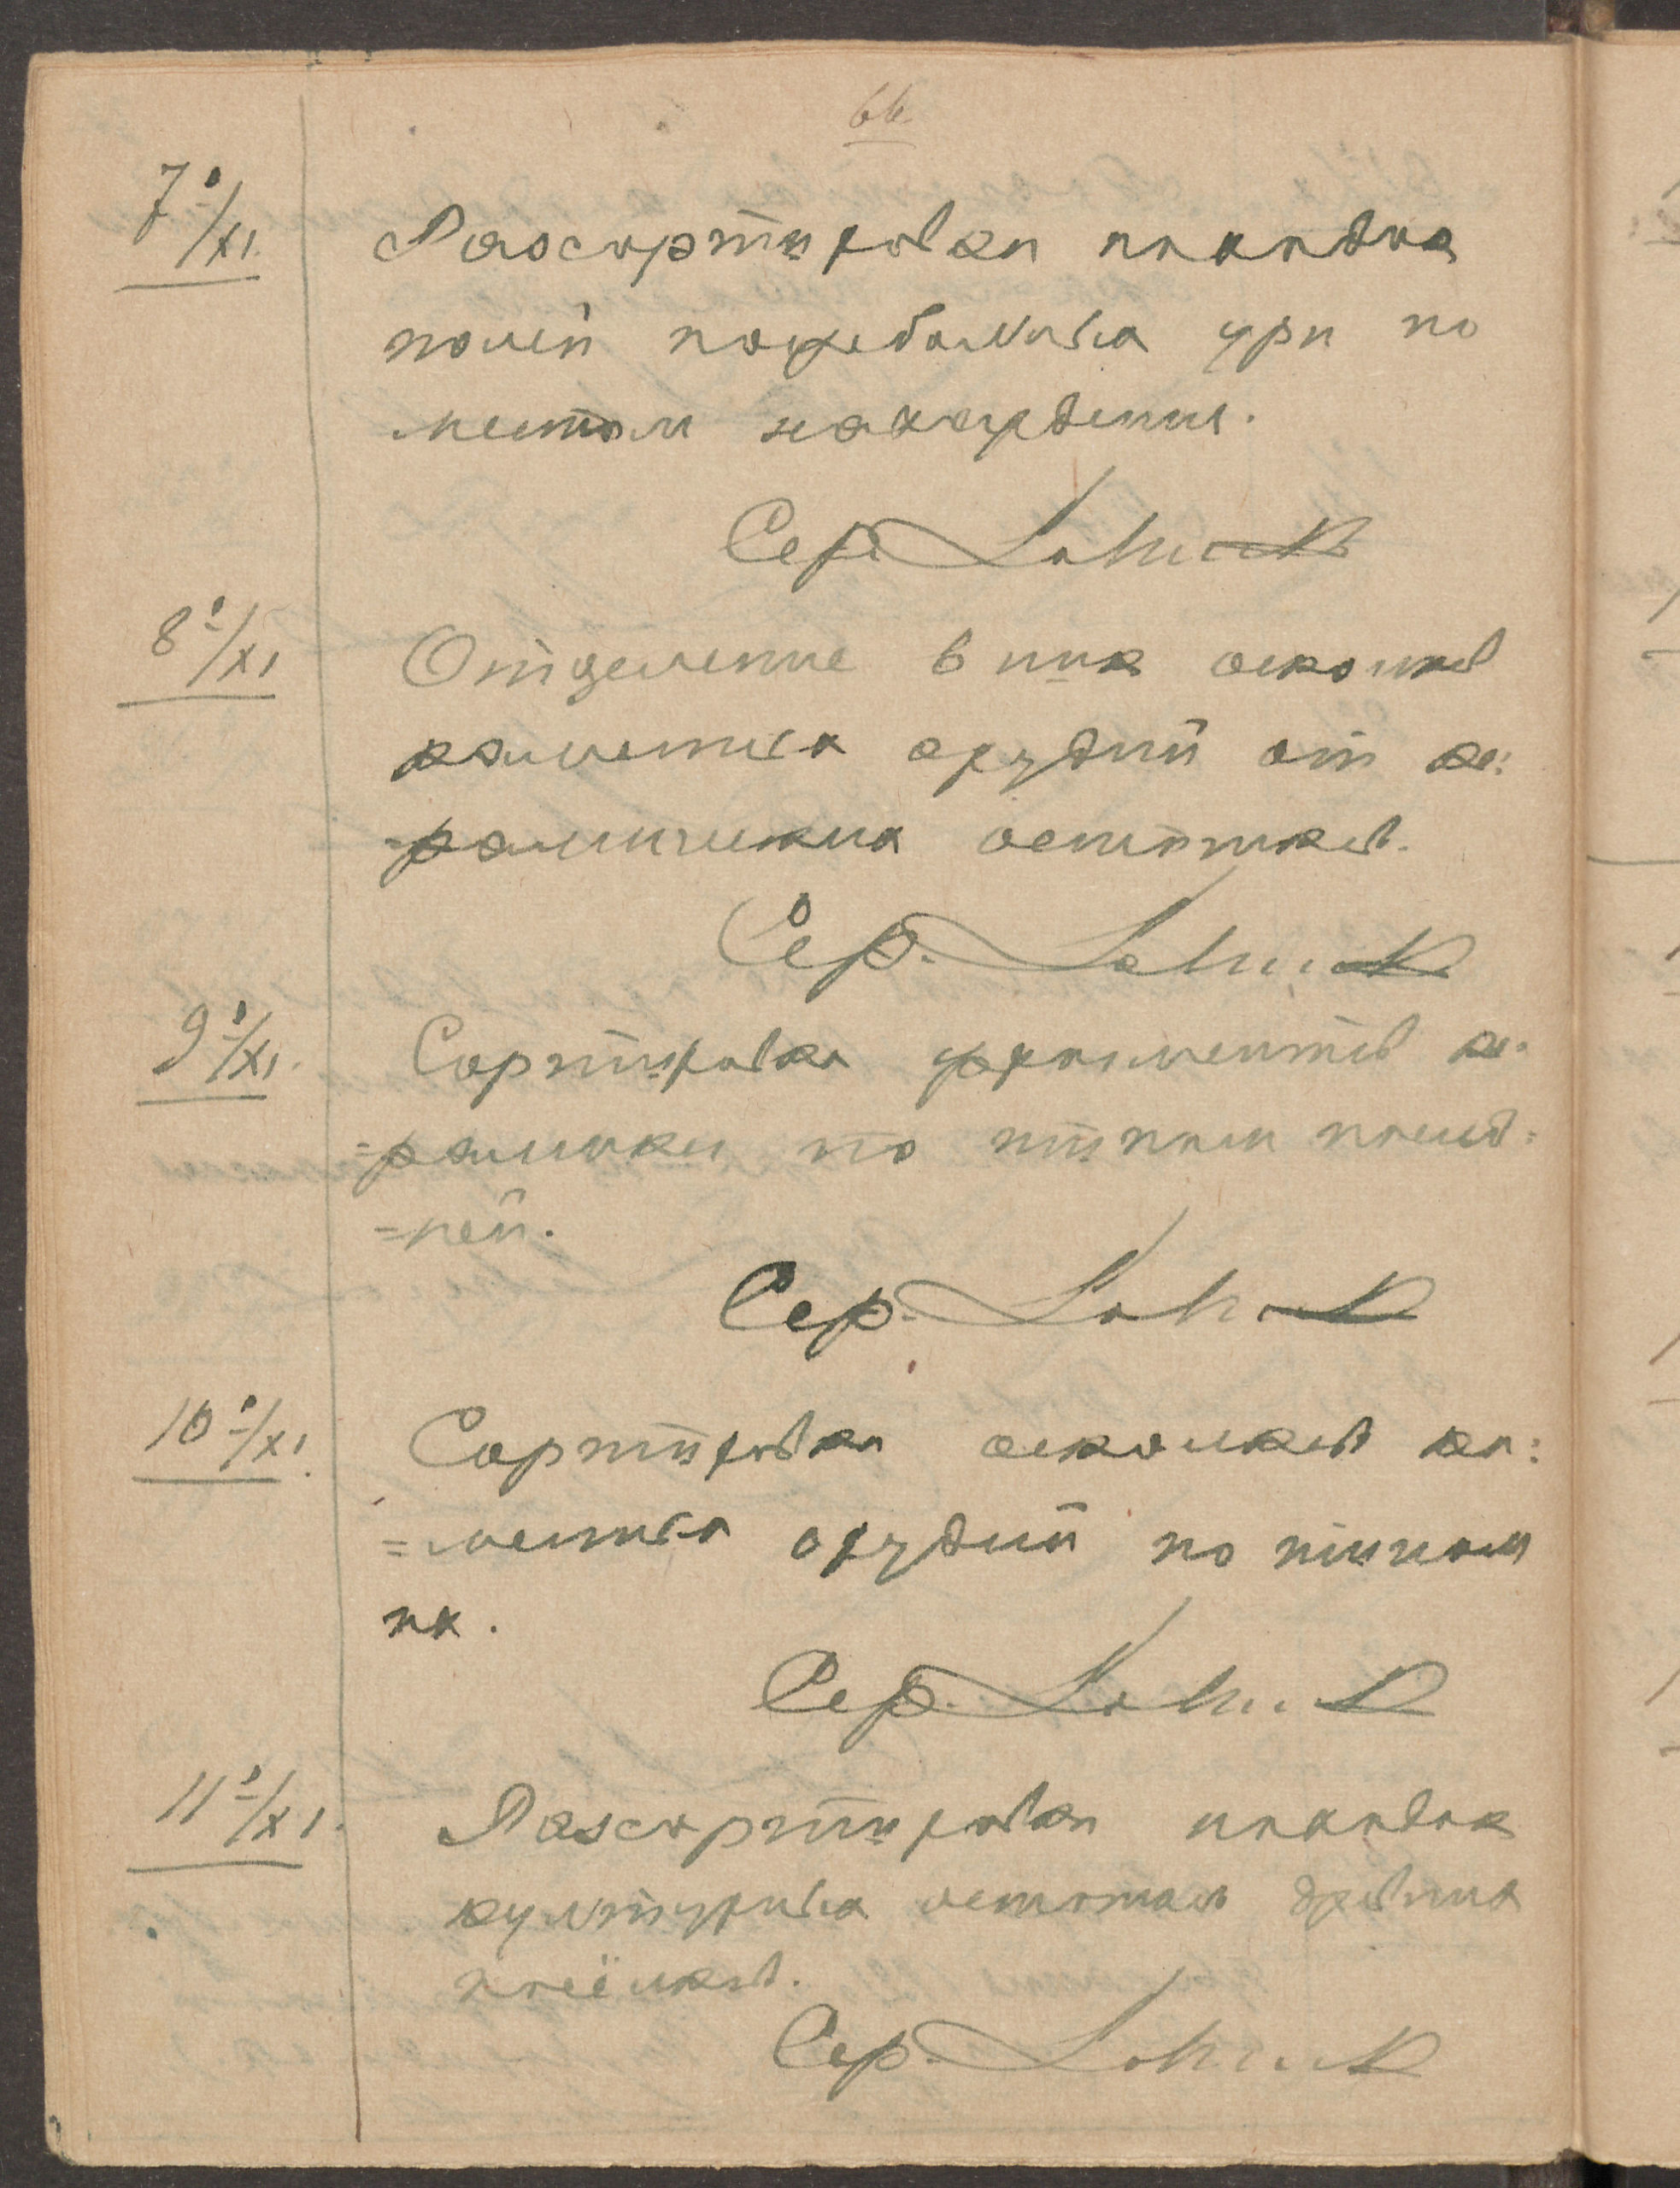 66.
7го/XI.
Разсортировка находок
полей погребальных урн по
местам нахождения.
Сер.
8го/XI
Отделение в них осколков
каменных орудий от ке:
=рамических остатков.
Сер.
9го/XI.
Сортировка фрагментов ке:
=рамики по типам
=ней.
Сер.
10го/XI.
Сортировка осколков ка:
=менных орудий по типам
их.
Сер.
11го/XI.
Разсортировка находок
культурных остатков древних
посёлков.
Сер.